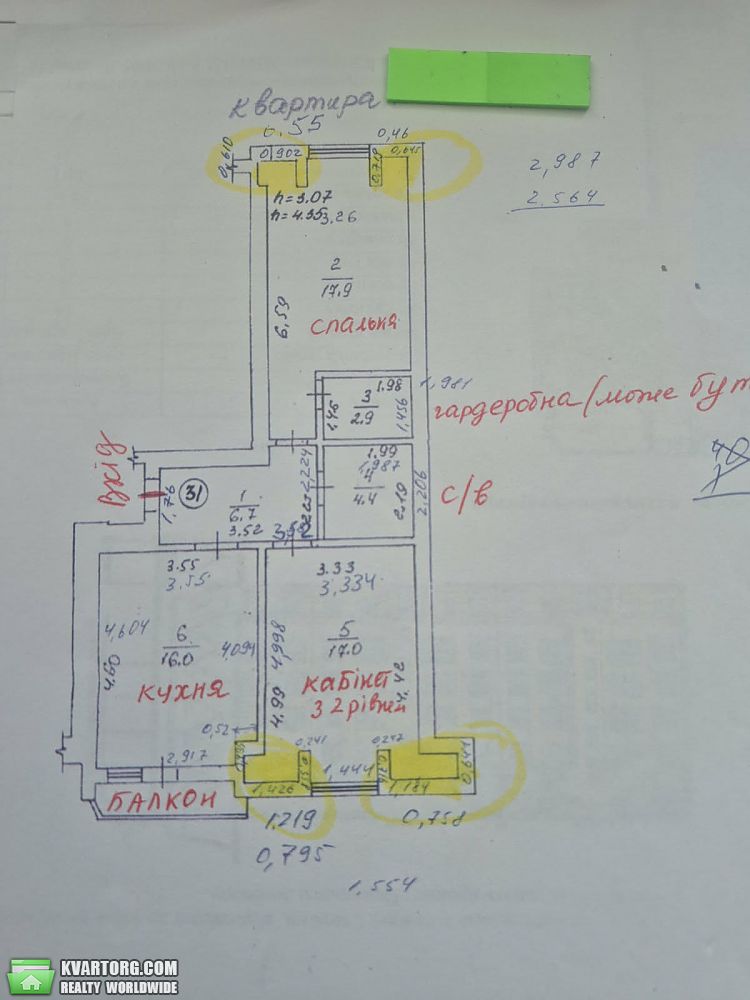 квартира
0.55
0,46
0,610
0,902
0,645
0,718
2,987
2.564
h=3.07
h=4.35
3.26
2
17.9
6.59
спальня
1.98
1,981
3
2.9
1.46
1,456
гардеробна (може бут
Вхід
1,76
31
1
6.7
3.52
2,224
1.99
1,987
4
4.4
2.19
2,206
с/в
3.55
3.55
3.33
3,334
4,604
4.60
6
16.0
4,094
кухня
4,998
4.99
5
17.0
4.42
кабінет
з 2 рівнем
0,52
2,917
0,241
0,247
0,641
1,444
1,426
1,184
БАЛКОН
1.219
0,758
0,795
1.554
KVARTORG.COM
REALTY WORLDWIDE